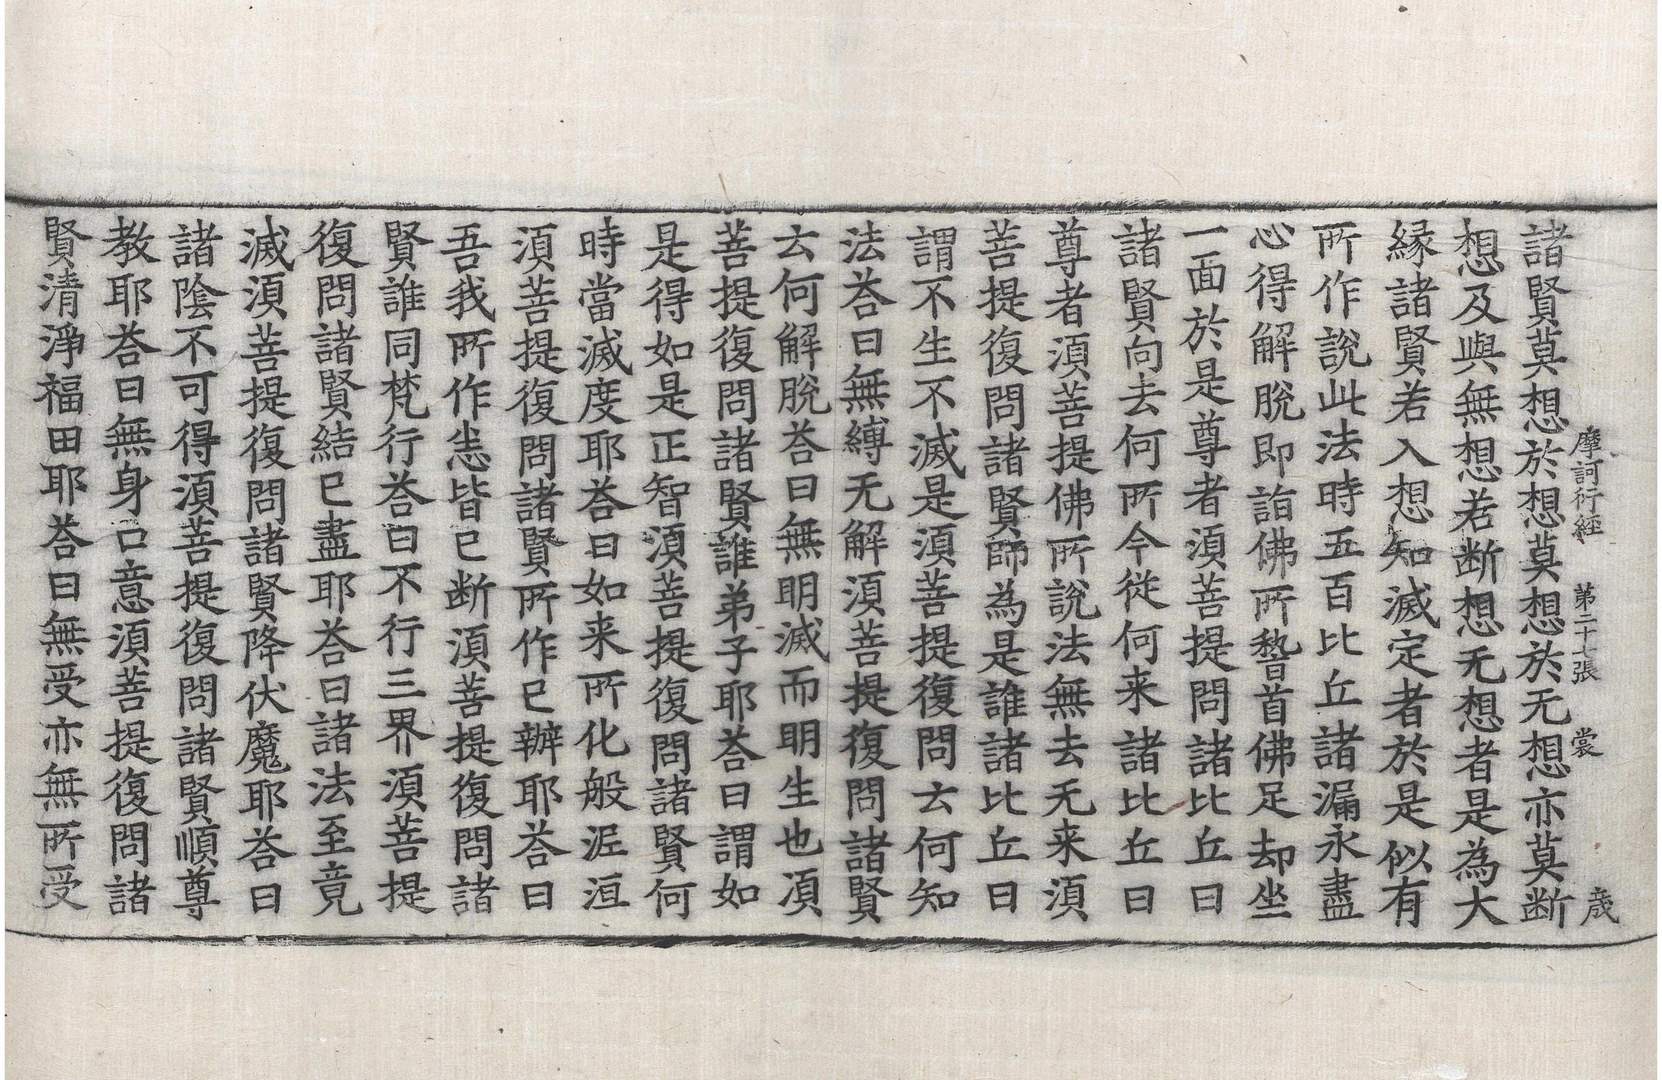 摩訶衍經　第二十七張　裳　歲
諸賢莫想於想莫想於无想亦莫断
想及與無想若断想无想者是為大
縁諸賢若入想知滅定者於是似有
所作說此法時五百比丘諸漏永盡
心得解脫即詣佛所䭫首佛足却坐
一面於是尊者湏菩提問諸比丘曰
諸賢向去何所今從何来諸比丘曰
尊者湏菩提佛所說法無去无来湏
菩提復問諸賢師為是誰諸比丘曰
謂不生不滅是湏菩提復問云何知
法荅曰無縛无解湏菩提復問諸賢
云何解脫荅曰無明滅而明生也湏
菩提復問諸賢誰弟子耶荅曰謂如
是得如是正智湏菩提復問諸賢何
時當滅度耶荅曰如来所化般泥洹
湏菩提復問諸賢所作已辦耶荅曰
吾我所作恙皆已断湏菩提復問諸
賢誰同梵行荅曰不行三界湏菩提
復問諸賢結已盡耶荅曰諸法至竟
滅湏菩提復問諸賢降伏魔耶荅曰
諸陰不可得湏菩提復問諸賢順尊
教耶荅曰無身口意湏菩提復問諸
賢清淨福田耶荅曰無受亦無所受